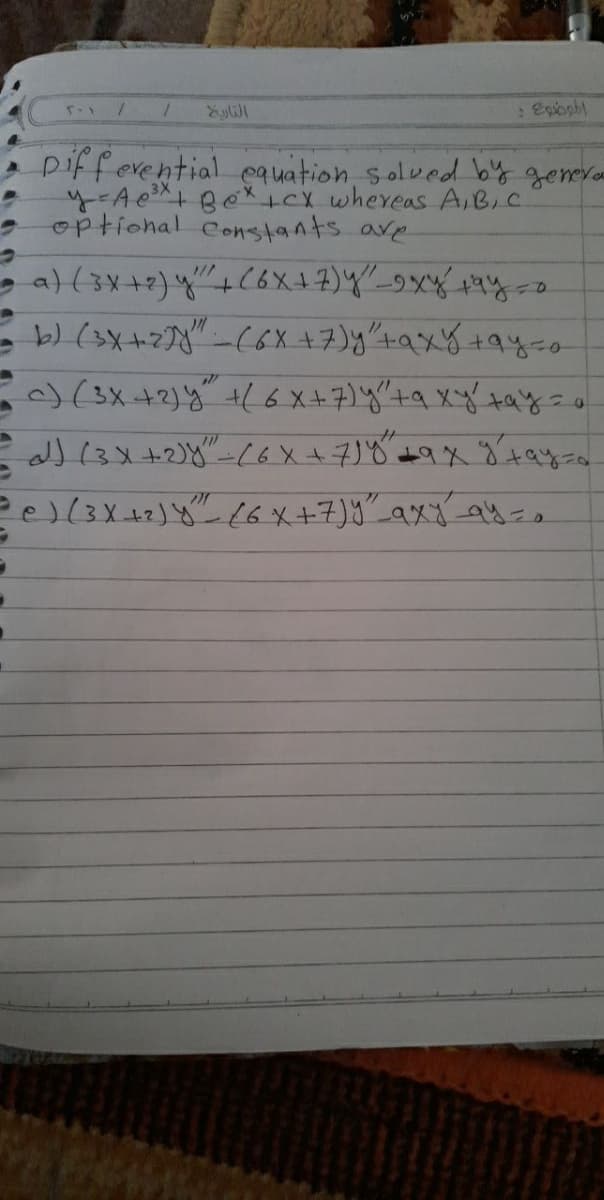 الموضوع : التاريخ / / ٢٠٠
Differential equation solved by genera
y=Ae³ˣ+Beˣ+cx whereas A,B,C
optional Constants are
a) (3x+2)y'''+(6x+7)y''-9xy'+9y=0
b) (3x+2)y'''-(6x+7)y''+9xy'+9y=0
c) (3x+2)y'''+(6x+7)y''+9xy'+9y=0
d) (3x+2)y'''-(6x+7)y''-9xy'+9y=0
e) (3x+2)y'''-(6x+7)y''-9xy'-9y=0